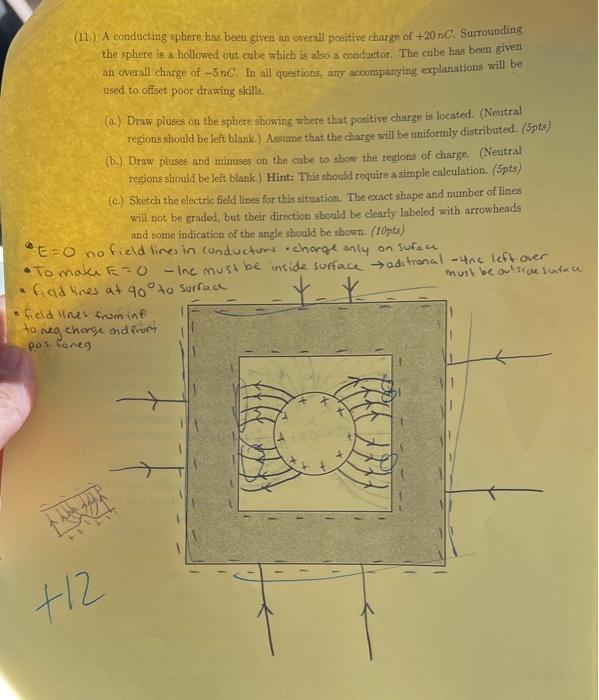 (11.) A conducting sphere has been given an overall positive charge of +20 nC. Surrounding
the sphere is a hollowed out cube which is also a conductor. The cube has been given
an overall charge of −5nC. In all questions, any accompanying explanations will be
used to offset poor drawing skills.
(a.) Draw pluses on the sphere showing where that positive charge is located. (Neutral
regions should be left blank.) Assume that the charge will be uniformly distributed. (5pts)
(b.) Draw pluses and minuses on the cube to show the regions of charge. (Neutral
regions should be left blank.) Hint: This should require a simple calculation. (5pts)
(c.) Sketch the electric field lines for this situation. The exact shape and number of lines
will not be graded, but their direction should be clearly labeled with arrowheads
and some indication of the angle should be shown. (10pts)
• E=0 no field lines in conductors • charge only on suface
• To make E=0 -1nc must be inside surface → aditional -4nc left over
must be outside surface
• field lines at 90° to surface
• field lines from inf
to neg charge and from
pos to neg
+12